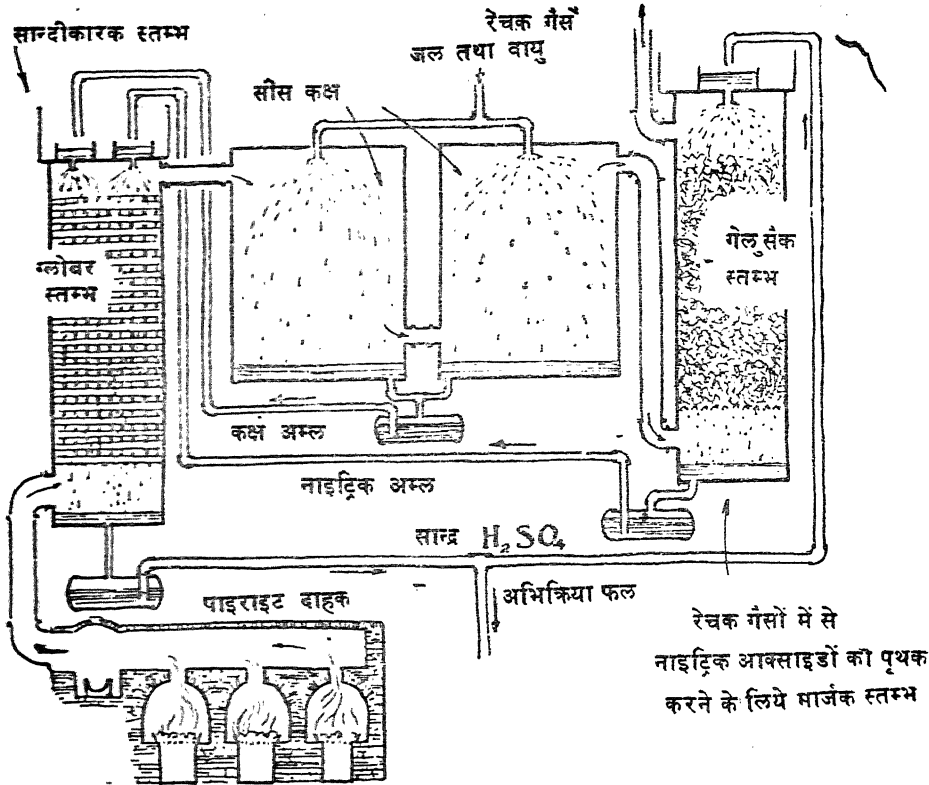 रेचक गैसें
सान्दीकारक स्तम्भ
जल तथा वायु
सीस कक्ष
ग्लोबर
स्तम्भ
गेलुसैक
स्तम्भ
कक्ष अम्ल
नाइट्रिक अम्ल
सान्द्र H₂SO₄
पाइराइट दाहक
अभिक्रिया फल
रेचक गैसों में से
नाइट्रिक आक्साइडों को पृथक
करने के लिये मार्जक स्तम्भ